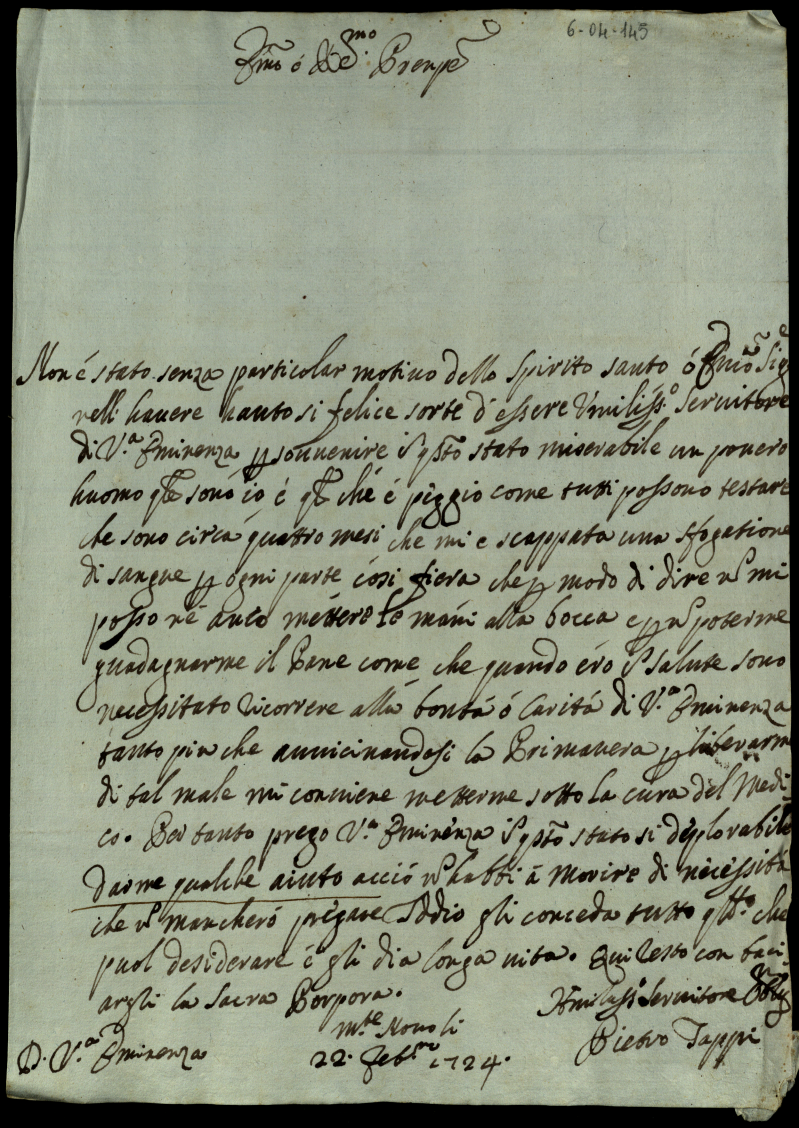 6-04-145
Emo é Rmo Prenpe
Non é stato senza particolar motivo dello Spirito santo ó Emo Sig.e
nell havere hauto si felice sorte d essere Vmiliss.o Servitore
di V.a Eminenza p souvenire i qsto stato miserabile un povero
huomo qle sono io é ql ché é piggio come tutti possono testare
che sono circa quattro mesi che mi e scappata una sfogatione
di sangue p ogni parte cosi fiera che p modo di dire n mi
posso né anco mettere le mani alla bocca e p n poterme
guadagnarme il Pane come che quando ero i salute sono
necessitato ricorrere alla bontá ó Caritá di V.a Eminenza
tanto piu che avvicinandosi la Primavera p liberarme
di tal male mi conviene metterme sotto la cura del Medi
co. Per tanto prego V.a Eminenza i qsto stato si deplorabile
darme qualche aiuto acció n habbi á morire di necessitá
che n mancheró pregare Iddio gli conceda tutto qllo che
puol desiderare é gli dia longa vita. Qui resto con baci
argli la Sacra Porpora.
D. V.a Eminenza
Mte Novoli
22. Feb.ro 1724.
Humiliss.o Servitore Obli
Pietro Tappi